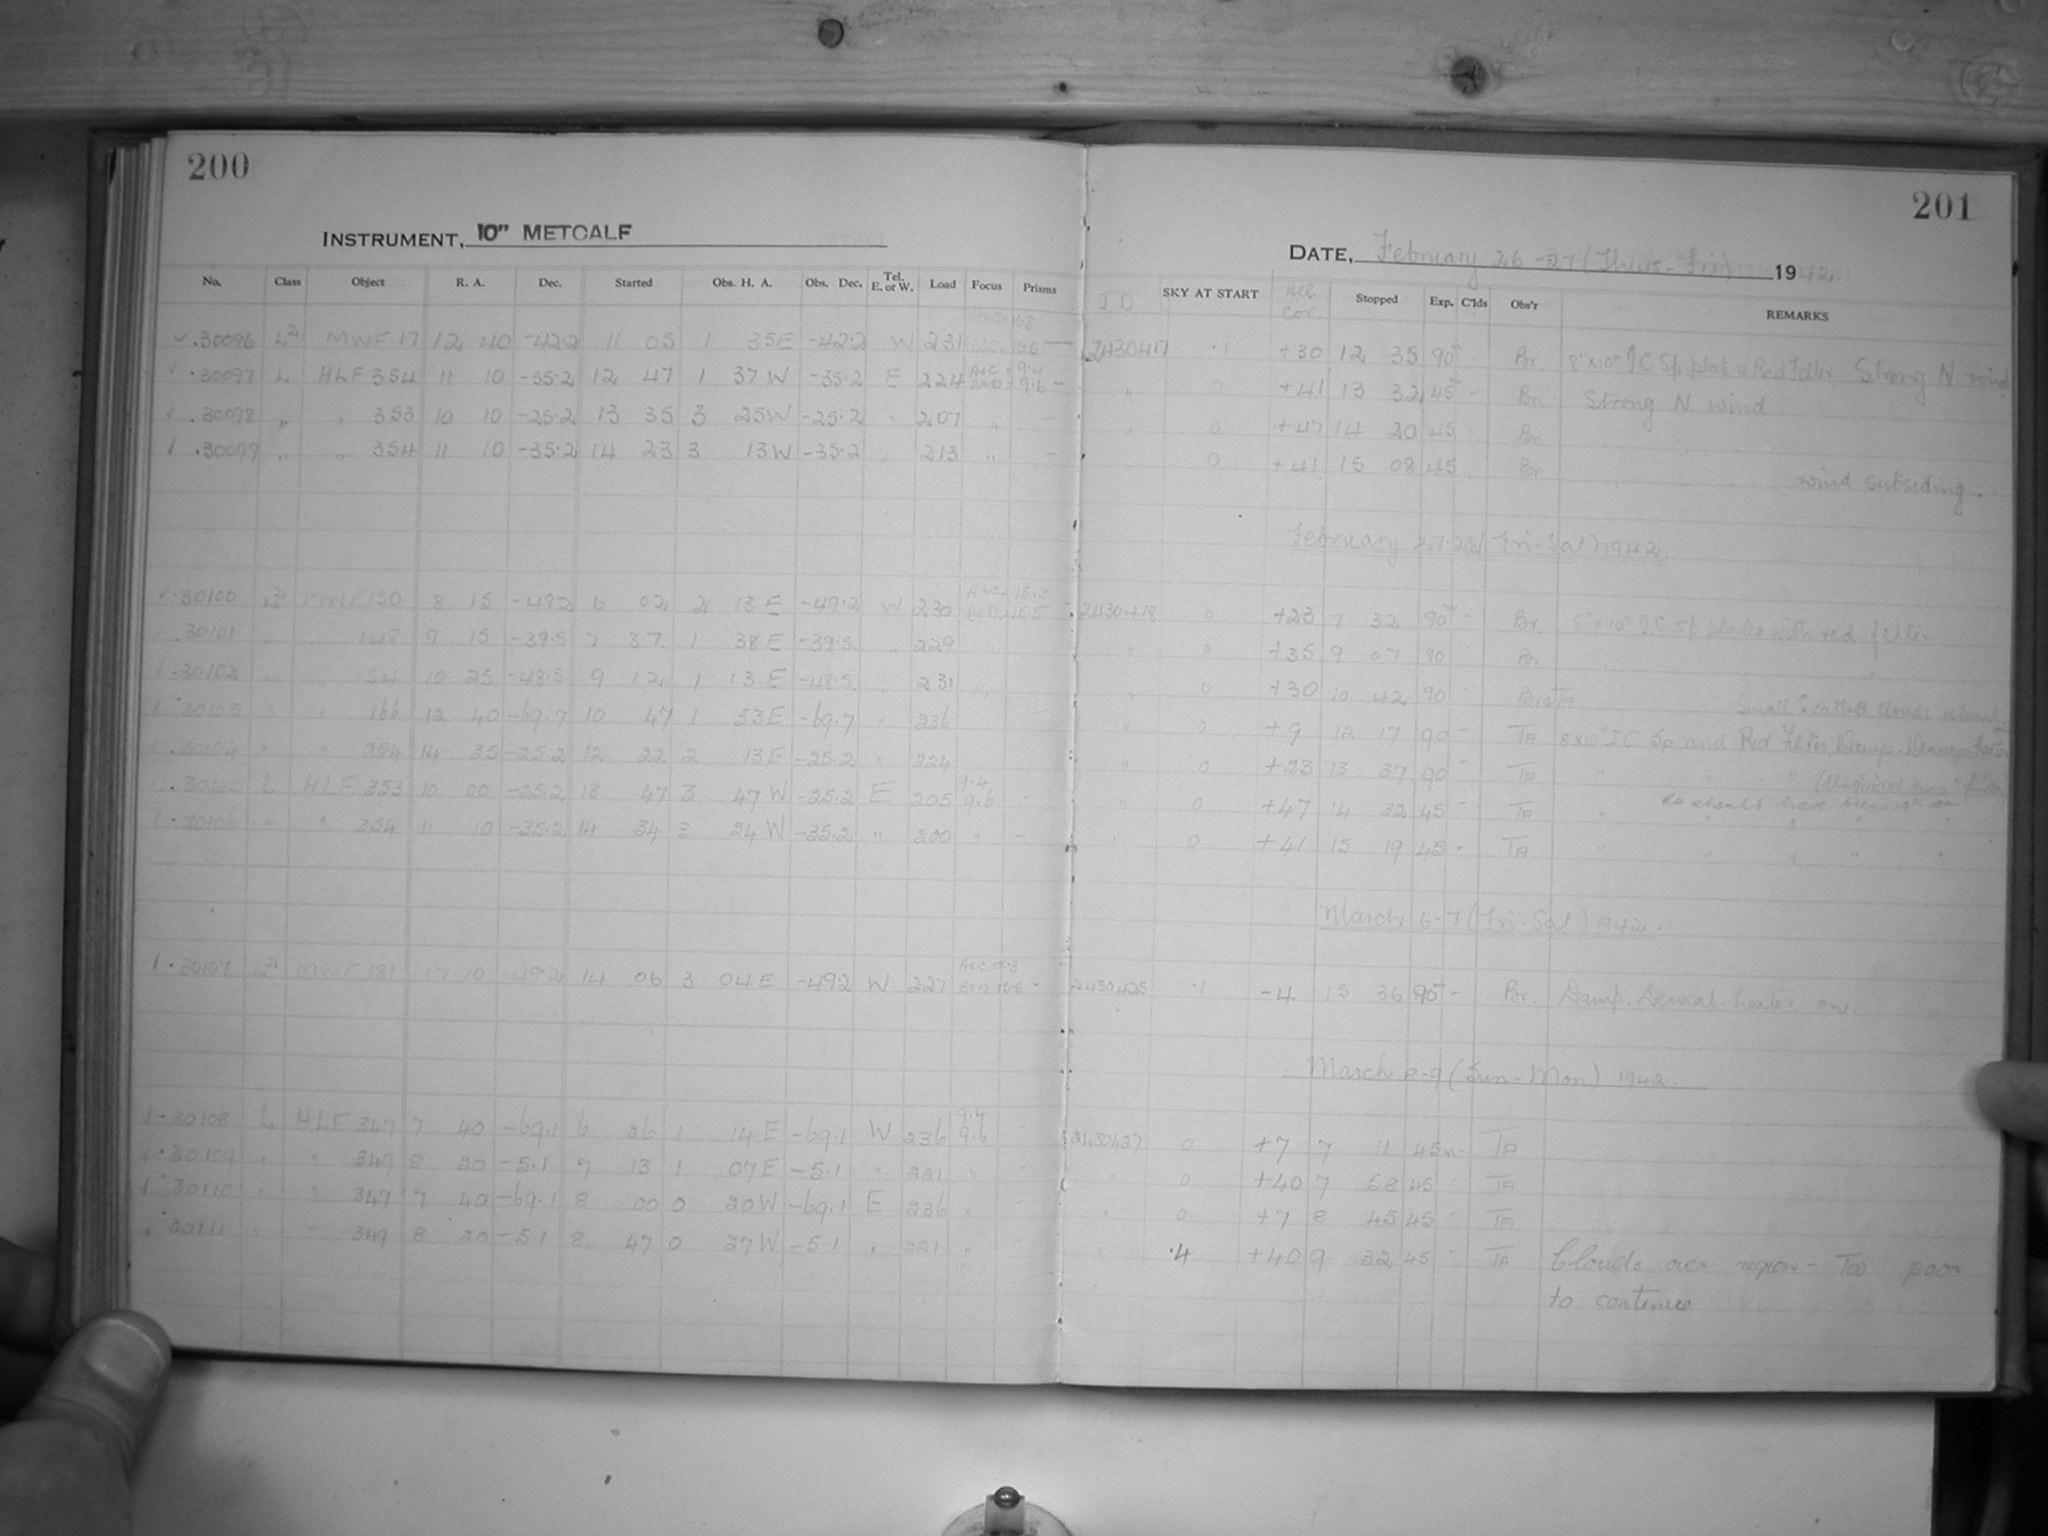 200
201
INSTRUMENT, 10" METCALF
DATE, February 26-27 (Thurs-Fri) 1942
No. Class Object R. A. Dec. Started Obs. H. A. Obs. Dec. Tel. E. or W. Load Focus Prisms J D SKY AT START Stopped Exp. C'lds Obs'r REMARKS
30096 MWF 17 12 40 -42.2 11 05 1 35E -42.2 W 231 2430417 .1 +30 12 35 90 Br. 8"x10" IC Sp plate & Red Filter. Strong N wind
.30097 L HLF 354 11 10 -35.2 12 47 1 37W -35.2 E 224 9.4 9.6 - " 0 +41 13 32 45 - Br. Strong N wind
.30098 " " 353 10 10 -25.2 13 35 3 25W -25.2 " 207 " - 0 +47 14 20 45 Br
.30099 " " 354 11 10 -35.2 14 23 3 13W -35.2 213 " - 0 +41 15 08 45 Br wind subsiding.
February 27-28 (Fri-Sat) 1942.
.30100 MWF 150 8 15 -49.2 6 02 2 13E -49.2 W 230 2430418 0 +23 7 32 90 Br. 8"x10" IC Sp plates with red filter
30101 148 9 15 -39.5 7 37 1 38E -39.5 229 " 0 +35 9 07 90 Br
.30102 10 25 -48.5 9 12 1 13E -48.5 " 231 " 0 +30 10 42 90 Br & TA Small Scatt'd clouds about
30103 " " 166 12 40 -69.7 10 47 1 53E -69.7 " 236 " 0 +9 12 17 90 - TA 8x10" IC Sp. and Red Filter. Damp.
.30104 " " 14 35 -25.2 12 22 2 13E -25.2 " 224 " 0 +23 13 37 90 - TA
.30105 L HLF 353 10 00 -25.2 13 47 3 47W -25.2 E 205 9.4 9.6 - " 0 +47 14 32 45 - TA RA should have been 10h 10m
.30106 " " 354 11 10 -35.2 14 34 3 24W -35.2 " 200 " - " 0 +41 15 19 45 - TA
March 6-7 (Fri-Sat) 1942.
.30107 MWF 181 17 10 -49.2 14 06 3 04E -49.2 W 227 2430425 .1 -4 15 36 90 - Br. Damp. Dewcap-heater on.
March 8-9 (Sun-Mon) 1942.
30108 L HLF 347 7 40 -69.1 6 26 1 14E -69.1 W 236 9.4 9.6 2430427 0 +7 7 11 45m - TA
.30109 " " 349 8 20 -5.1 7 13 1 07E -5.1 " 221 " " 0 +40 7 58 45 TA
30110 " " 347 7 40 -69.1 8 00 0 20W -69.1 E 236 " " 0 +7 8 45 45 TA
30111 " " 349 8 20 -5.1 8 47 0 27W -5.1 " 221 " " .4 +40 9 32 45 TA Clouds over region - Too poor
to continue